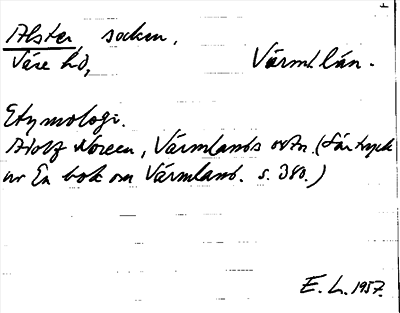 Alster, socken.
Väse hd, Värml. län.
Etymologi.
Adolf Noreen, Värmlands ortn. (Särtryck
ur En bok om Värmland. s. 380.)
E. L. 1957.